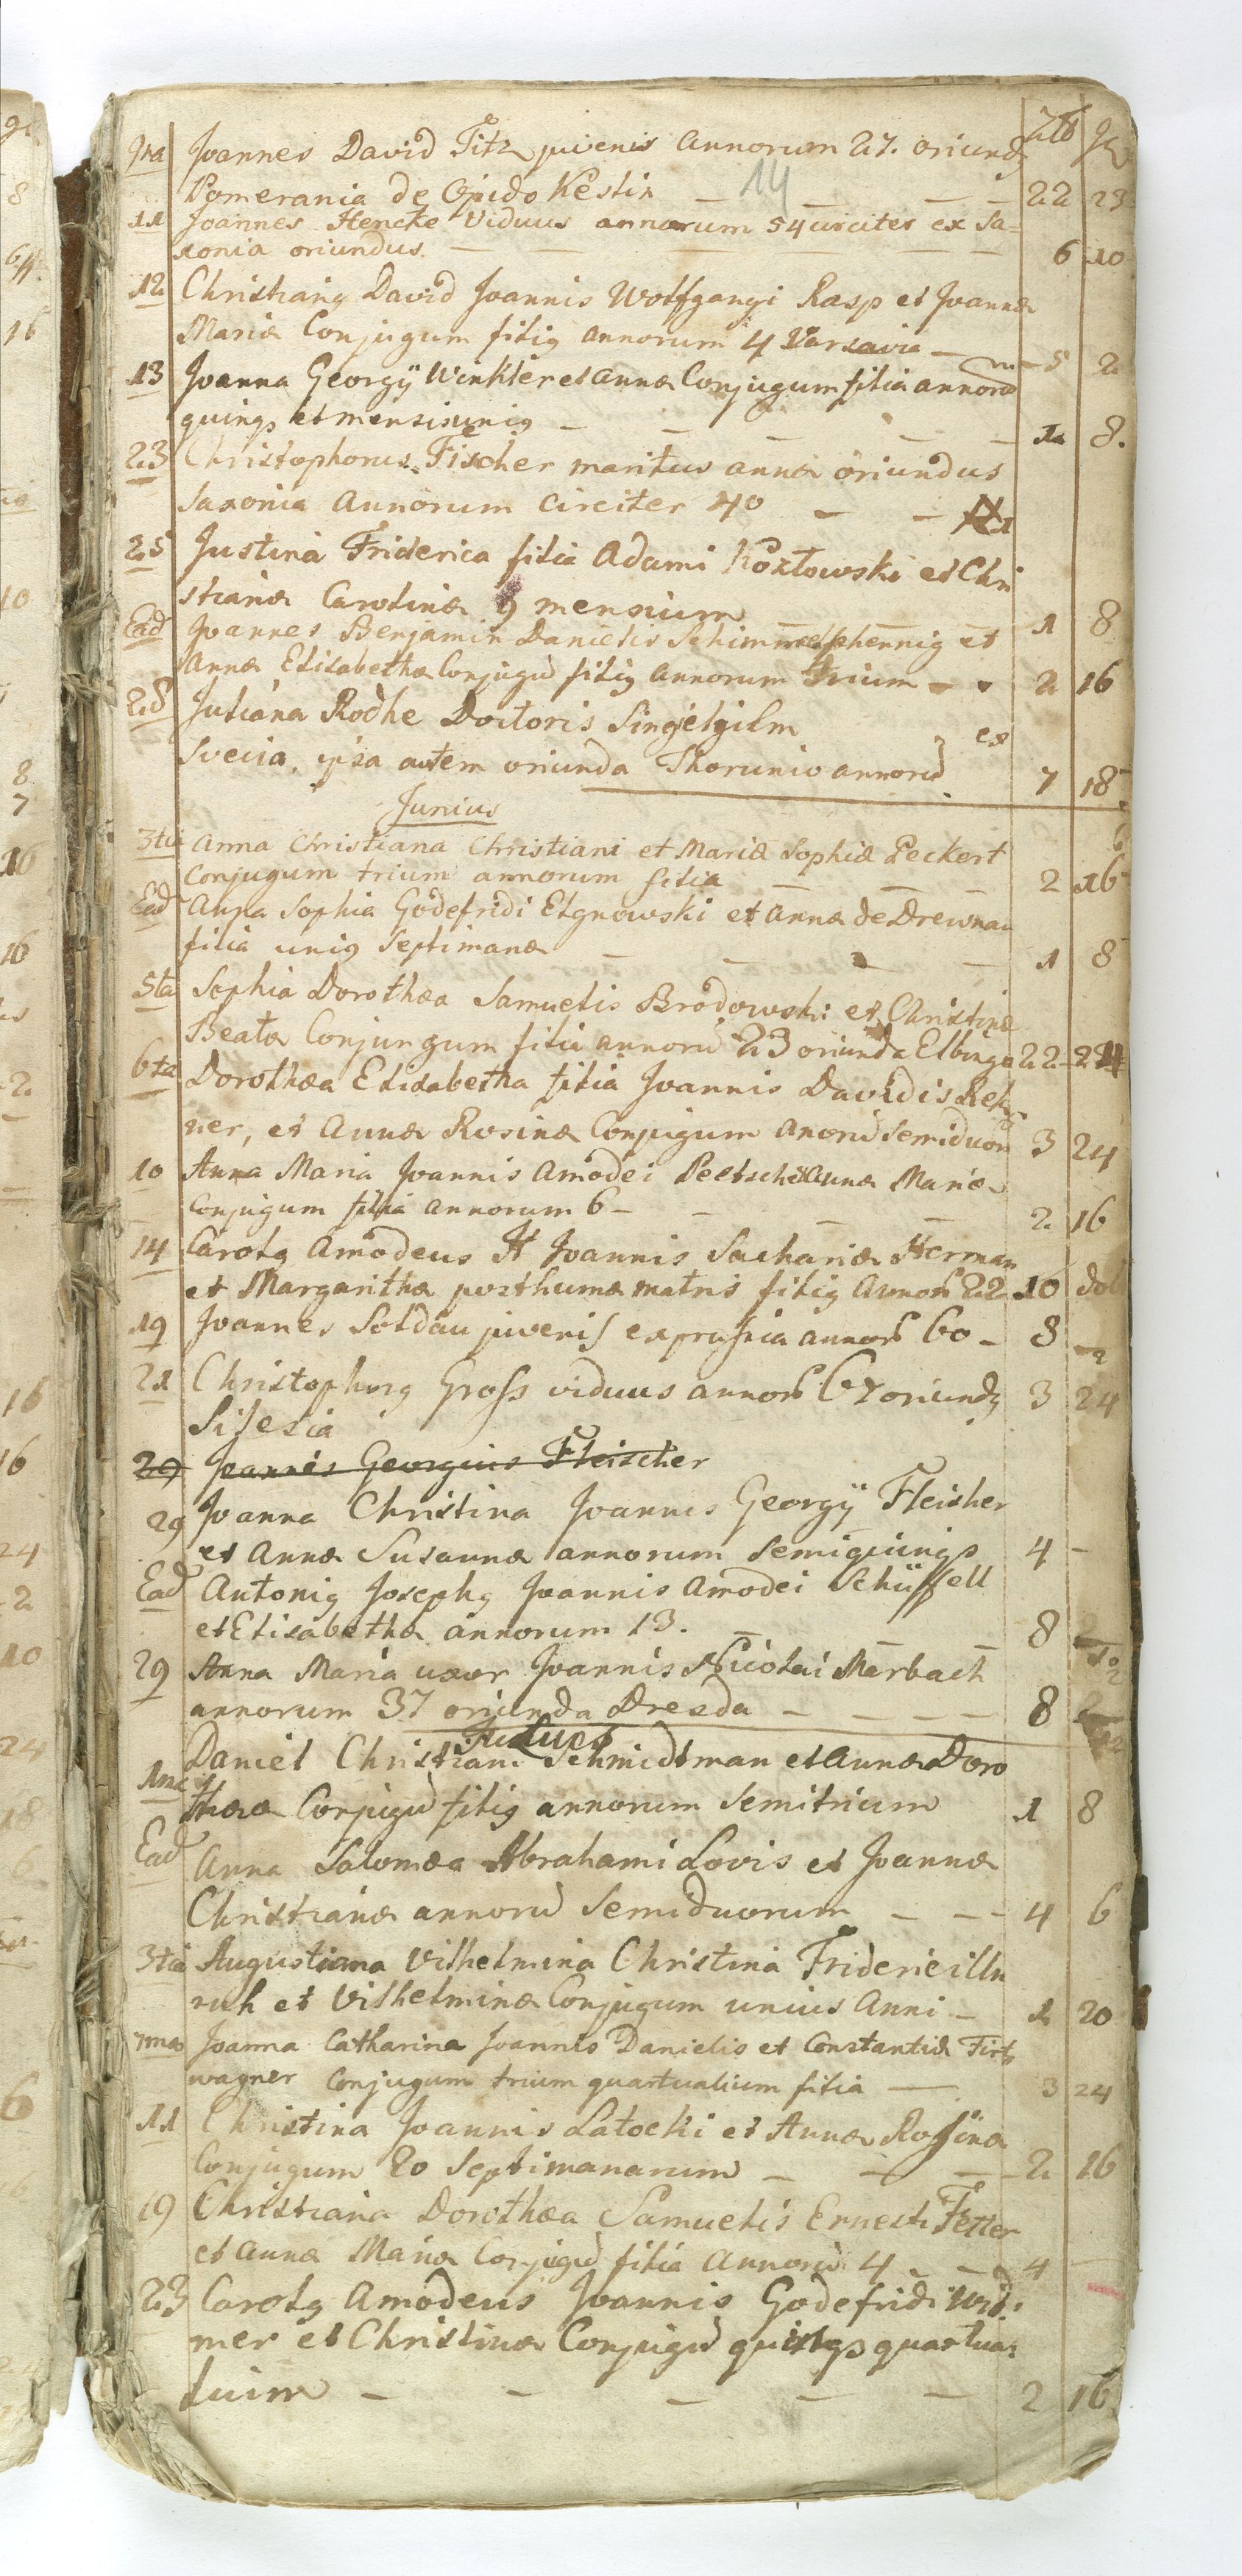 14
9na Joannes David Titz juvenis annorum 27. oriund9
Pomerania de Opido Kestin — — — 22 23
11 Joannes Hencke Viduus annorum 54 circiter ex Sa=
xonia oriundus. — — — 6 10
12 Christian9 David Joannis Wolffgangi Rasp et Joannæ
Mariæ Conjugum fili9 annorum 4 Varsavia — 5 2
13 Joanna Georgÿ Winkler et Annæ Conjugum filia annoru
quinq3 et mensis uni9 — — — — 1 8.
23 Christophorus Fischer maritus annæ oriundus
Saxonia annorum circiter 40 — —
25 Justina Friderica filia Adami Kozłowski et Chri
stianæ Carolinæ 9 mensium 1 8
Ead Joannes Benjamin Danielis Schimmelphennig et
Annæ Elisabethæ Conjugu fili9 annorum trium — — 2 16
28 Juliana Rodhe Doctoris Singielgilm ex
Svecia, ipsa autem oriunda Thorunio annoru 7 18
Junius
3tia Anna Christiana Christiani et Mariæ Sophiæ Peckert
Conjugum trium annorum filia — — — 2 16
Ead Anna Sophia Godefridi Elgnowski et Annæ de Drewnau
filia uni9 Septimanæ — — — — 1 8
5ta Sophia Dorothæa Samuelis Brodowski et Christinæ
Beatæ Conjungum filia annoru 23 oriunda Elbinga 22 24
6ta Dorothæa Elisabetha filia Joannis Davidis
ner, et Annæ Rosinæ Conjugum anoru Semiduor 3 24
10 Anna Maria Joannis Amodei Peltsch et Annæ Mariæ
Conjugum filia annorum 6 — — — — 2 16
14 Carol9 Amodeus H Joannis Sachariæ Herman
et Margarithæ posthumæ matris fili9 Annor 22 10
19 Joannes Soldau juvenis ex prussia annor 60 — 8
21 Christophor9 Gross viduus annor 67 oriund9 3 24
Silesia
29 Joannes Georgius Fleischer
29 Joanna Christina Joannis Georgÿ Fleisher
et Annæ Susannæ annorum Semiquinq3 4 —
Ead Antoni9 Joseph9 Joannis Amodei Schüffell
et Elisabethæ annorum 13. — 8
29 Anna Maria uxor Joannis Nicolai Merbach
annorum 37 oriunda Dresda — — — — 8
Julius
1ma Daniel Christiani Schmidtman et Annæ Doro
theæ Conjugu fili9 annorum Semitrium 1 8
Ead Anna Salomæa Abrahami Lovis et Joannæ
Christianæ annoru Semiduorum — — — 4 6
3tia Augustiana Vilhelmina Christina Friderici
ruh et Vilhelminæ Conjugum unius Anni — 1 20
7ma Joanna Catharina Joannis Danielis et Constantiæ Firt
wagner Conjugum trium quartualium filia — 3 24
11 Christina Joannis Latocki et Annæ Rosinæ
Conjugum 20 Septimanarum — — — 2 16
19 Christiana Dorothæa Samuelis Ernesti Fetter
et Annæ Mariæ Conjugu filia Annoru 4 — — 4 —
23 Carol9 Amodeus Joannis Godefridi Wid:
mer et Christinæ Conjugu quinq3 quartua:
lium — — — — — 2 16